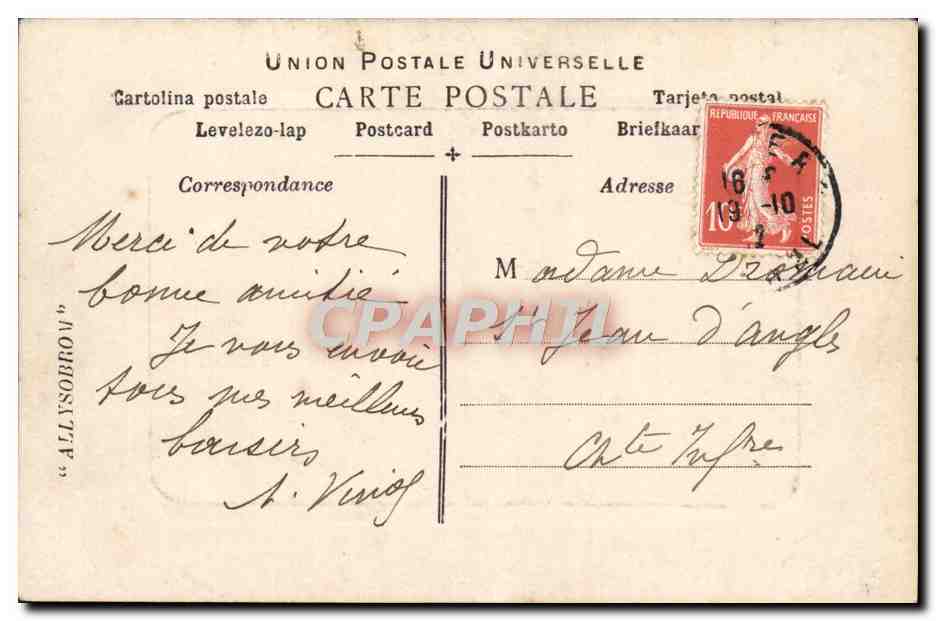 UNION POSTALE UNIVERSELLE
Cartolina postale CARTE POSTALE Tarjeta postal
Levelezo-lap Postcard Postkarto Briefkaar
Correspondance Adresse
REPUBLIQUE FRANÇAISE
10
POSTES
16
19 -10
Merci de votre
bonne amitié
Je vous envoie
tous mes meilleurs
baisers
Madame
St Jean d'Angles
Chte Infres
"ALLYSOBROM"
CPAPHIL